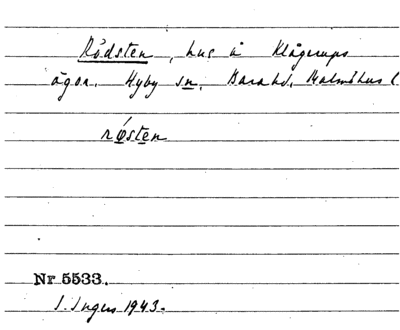 Rödsten, hus å Klågerups
ägor. Hyby sn. Bara hd. Malmöhus l.
røsten
Nr 5533.
I. Ingers 1943.